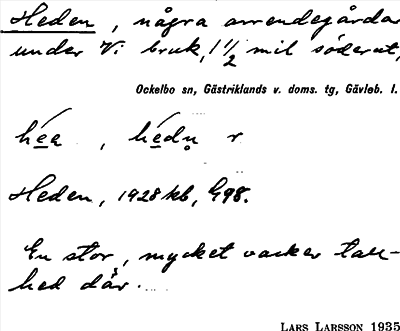 Heden, några arrendegårdar
under Vi bruk, 1 1/2 mil söderut,
Ockelbo sn, Gästriklands v. doms. tg, Gävleb. l.
héa, hédn̥ r
Heden, 1928 kb, G98.
En stor, mycket vacker tall-
hed där.
LARS LARSSON 1935